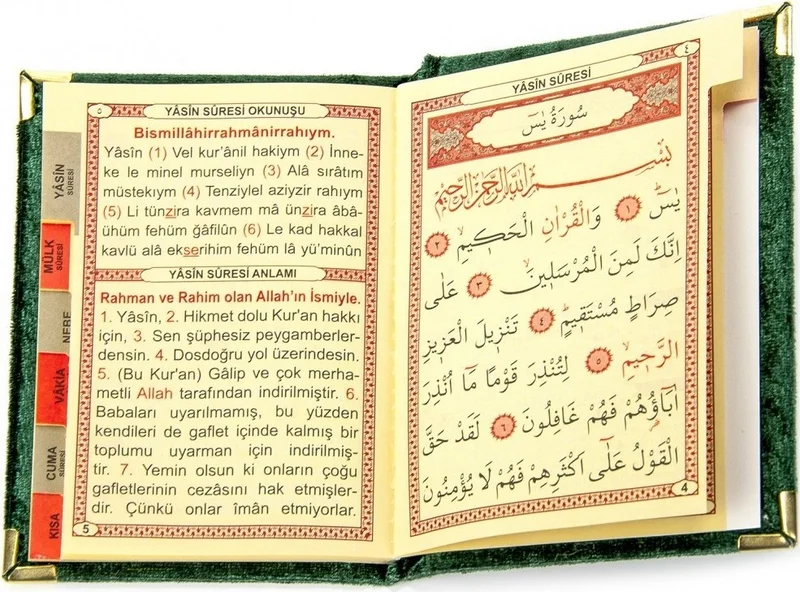 ٤
YÂSİN SÛRESİ
سُورَةُ يٰسٓ
بِسْمِ اللّٰهِ الرَّحْمٰنِ الرَّحِيمِ
يٰسٓ ١ وَالْقُرْاٰنِ الْحَكِيمِ ٢
اِنَّكَ لَمِنَ الْمُرْسَلِينَ ٣ عَلٰى
صِرَاطٍ مُسْتَقِيمٍ ٤ تَنْزِيلَ الْعَزِيزِ
الرَّحِيمِ ٥ لِتُنْذِرَ قَوْمًا مَٓا اُنْذِرَ
اٰبَٓاؤُ۬هُمْ فَهُمْ غَافِلُونَ ٦ لَقَدْ حَقَّ
الْقَوْلُ عَلٰٓى اَكْثَرِهِمْ فَهُمْ لَا يُؤْمِنُونَ
4
٥
YÂSİN SÛRESİ OKUNUŞU
Bismillâhirrahmânirrahıym.
Yâsîn (1) Vel kur'ânil hakiym (2) İnne-
ke le minel murseliyn (3) Alâ sırâtım
müstekıym (4) Tenziylel aziyzir rahıym
(5) Li tünzira kavmem mâ ünzira âbâ-
ühüm fehüm ğâfilûn (6) Le kad hakkal
kavlü alâ ekserihim fehüm lâ yü'minûn
YÂSİN SÛRESİ ANLAMI
Rahman ve Rahim olan Allah'ın İsmiyle.
1. Yâsîn, 2. Hikmet dolu Kur'an hakkı
için, 3. Sen şüphesiz peygamberler-
densin. 4. Dosdoğru yol üzerindesin.
5. (Bu Kur'an) Gâlip ve çok merha-
metli Allah tarafından indirilmiştir. 6.
Babaları uyarılmamış, bu yüzden
kendileri de gaflet içinde kalmış bir
toplumu uyarman için indirilmiş-
tir. 7. Yemin olsun ki onların çoğu
gafletlerinin cezâsını hak etmişler-
dir. Çünkü onlar îmân etmiyorlar.
5
YÂSİN
SÛRESİ
MÜLK
SÛRESİ
NEBE
VÂKIA
CUMA
SÛRESİ
KISA